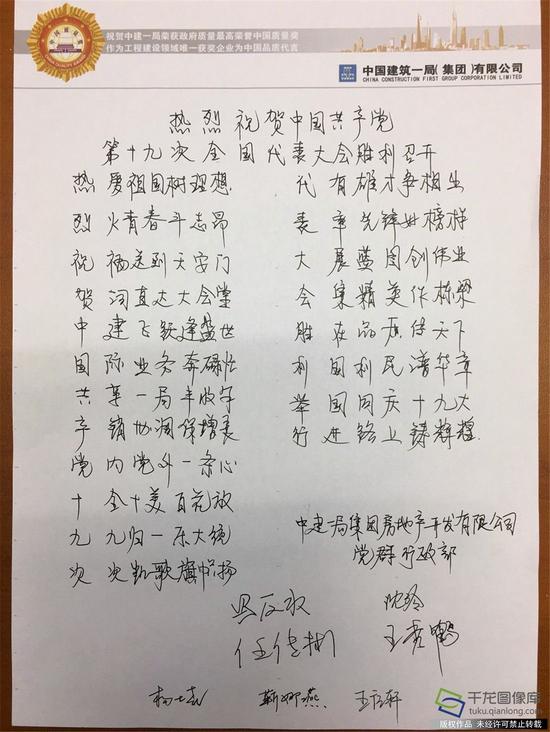 祝贺中建一局荣获政府质量最高荣誉中国质量奖
作为工程建设领域唯一获奖企业为中国品质代言
中国建筑一局(集团)有限公司
CHINA CONSTRUCTION FIRST GROUP CORPORATION LIMITED
热烈祝贺中国共产党
第十九次全国代表大会胜利召开
热爱祖国树理想
烈火青春斗志昂
祝福送到天安门
贺词直达大会堂
中建飞跃逢盛世
国际业务奔碌忙
共享一局丰收年
产销协调保增长
党内党外一条心
十全十美百花放
九九归一乐大统
次次凯歌旗中扬
代有雄才争相出
表率先锋好榜样
大展蓝图创伟业
会集精英作栋梁
胜在品质传天下
利国利民谱华章
举国同庆十九大
行进路上铸辉煌
中建一局集团房地产开发有限公司
党群行政部
沈玲
靳娜燕
千龙图像库
tuku.qianlong.com
版权作品 未经许可禁止转载